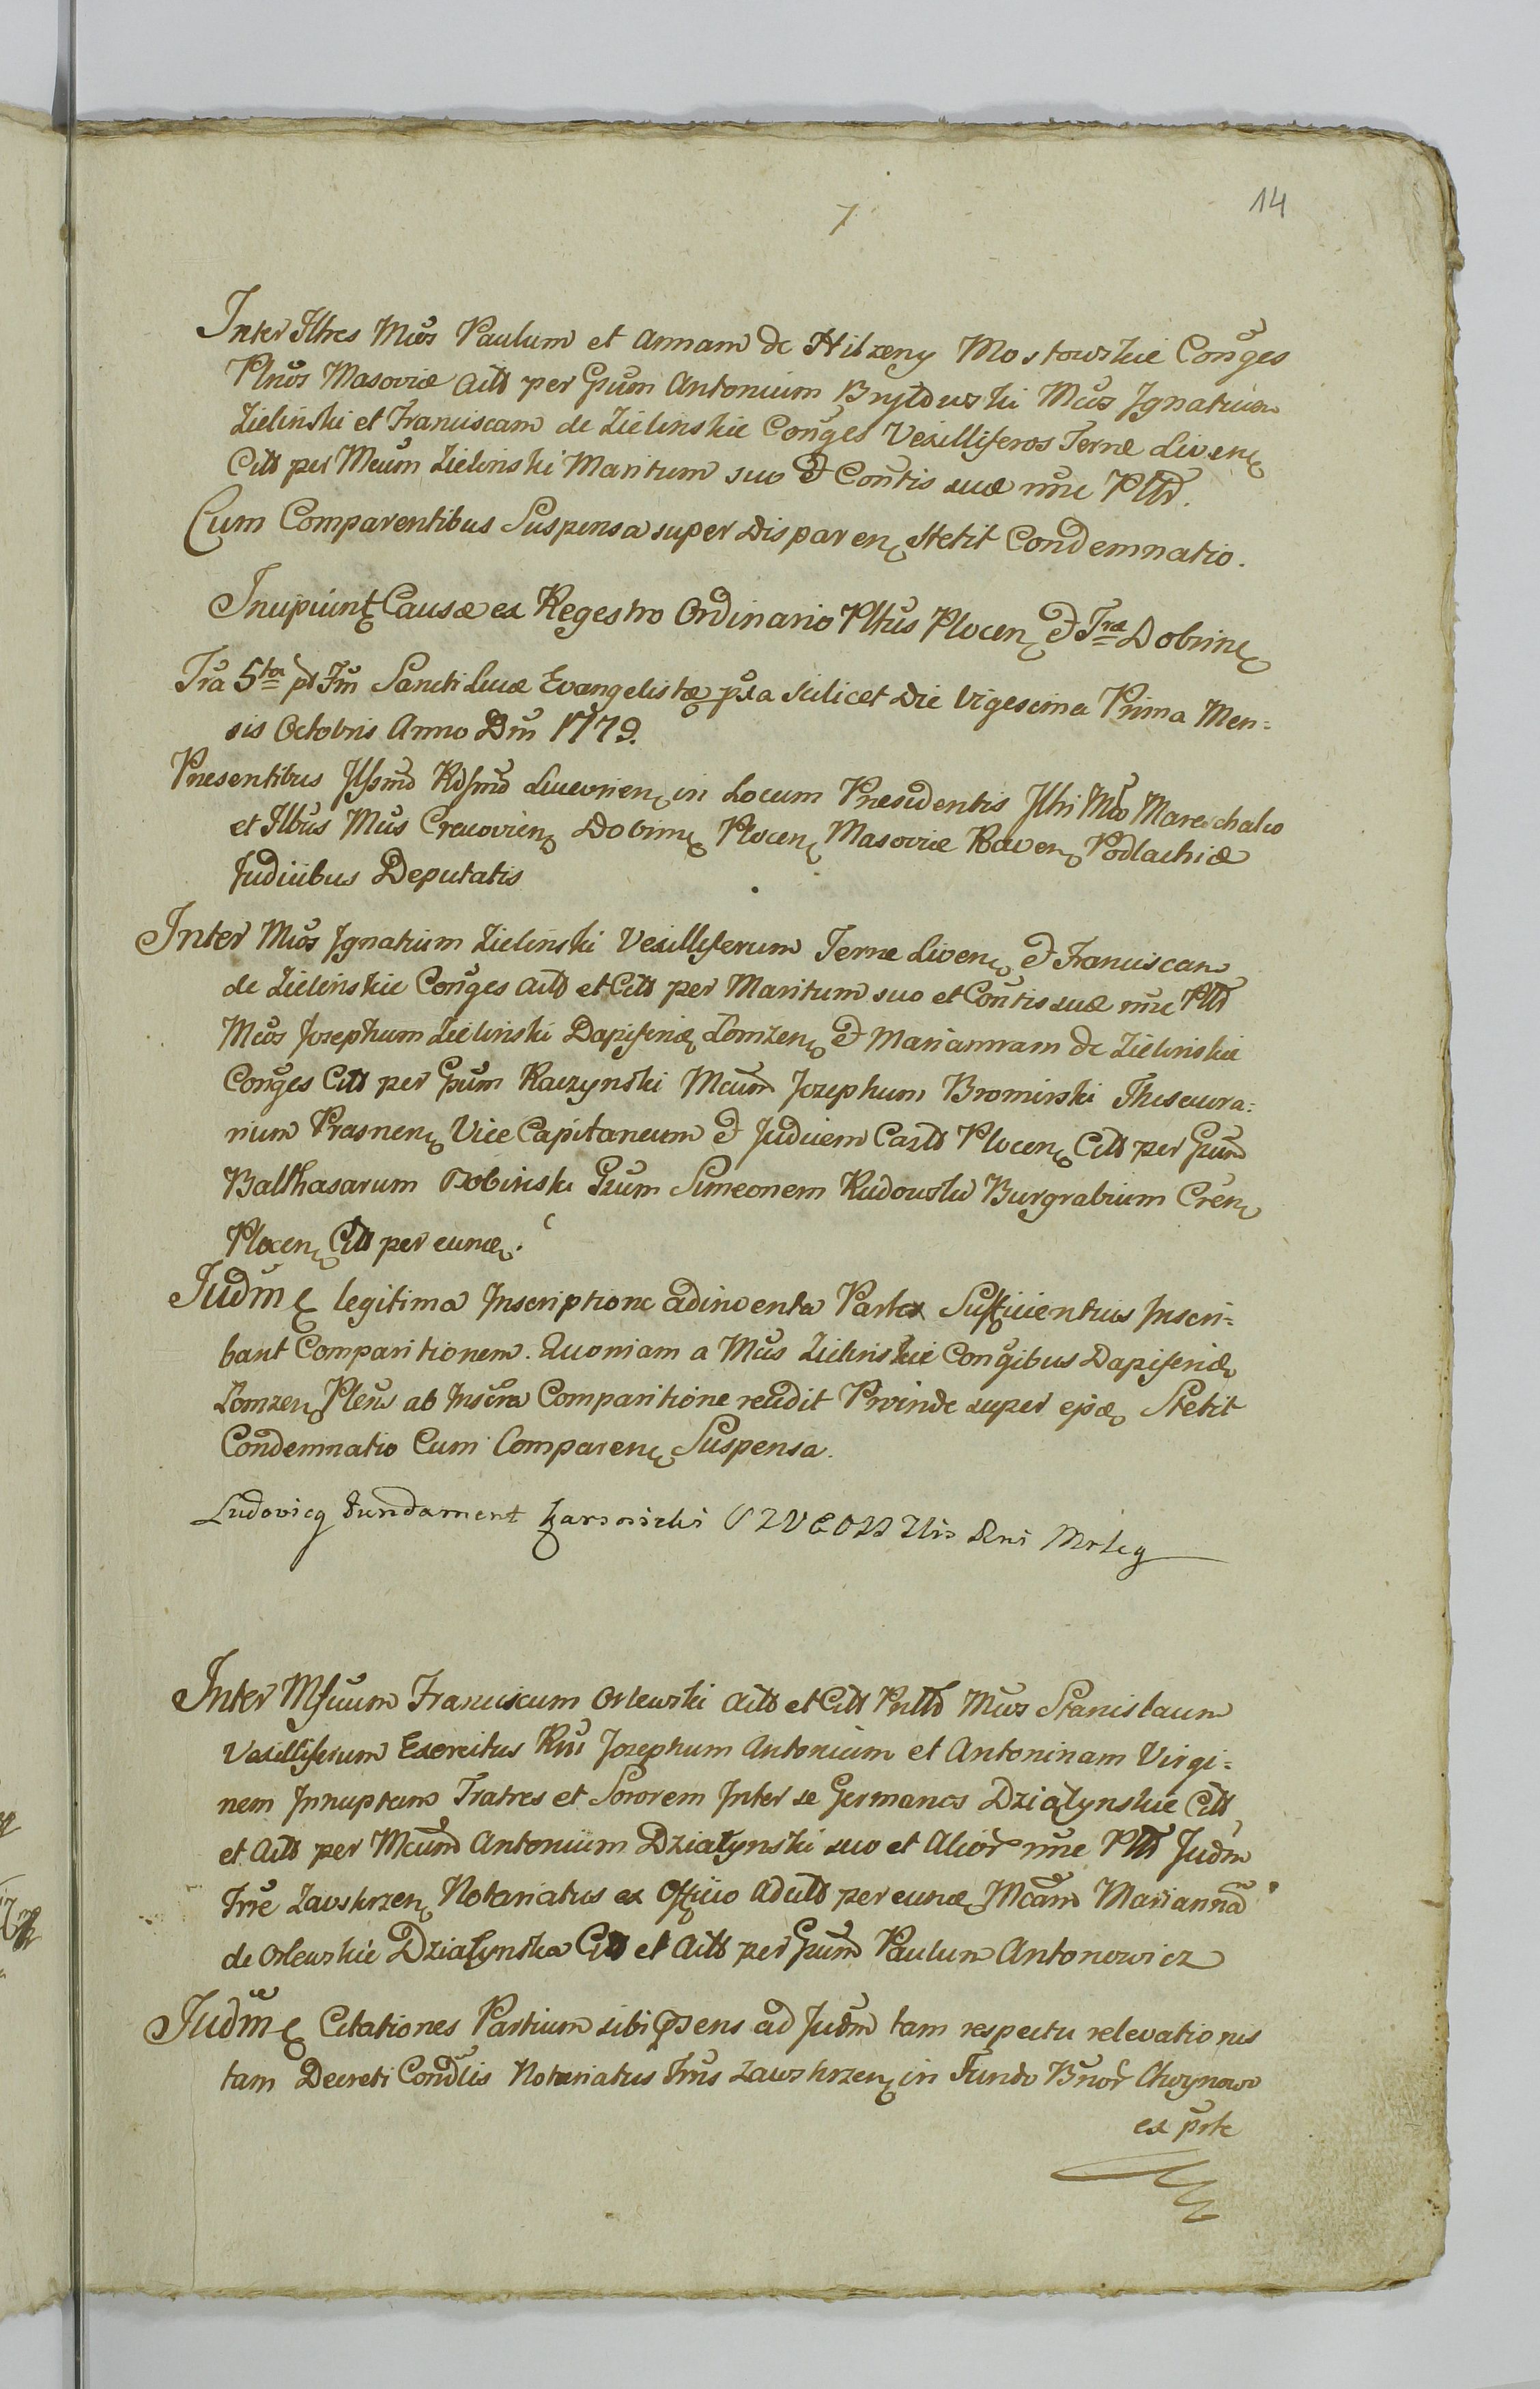 14
7
Inter Illres Mcos Paulum et Annam de Hilzeny Mostowskie Conges
Pltnos Masoviæ Actt per Gsum Antonium Brytowski Mcos Ignatium
Zielinski et Franciscam de Zielinskie Conges Vexilliferos Terræ Livens
Citt per Mcum Zielinski Maritum suo et Contis suæ nne Pltt.
Cum Comparentibus Suspensa super Disparen Stetit Condemnatio.
Incipiunt Causæ ex Regestro Ordinario Pltus Plocen et Træ Dobrinen
Fra 5ta pt Fm Sancti Lucæ Evangelistæ pxa scilicet Die Vigesima Prima Men=
sis Octobris Anno Dni 1779.
Presentibus Illsmo Rdsmo Luceorien in Locum Præsidentis Illri Mco Mareschalco
et Illbus Mcis Cracovien Dobrinen Plocen Masoviæ Raven Podlachiæ
Judicibus Deputatis
Inter Mcos Ignatium Zielinski Vexilliferum Terræ Liven et Franciscam
de Zielinskie Conges Actt et Citt per Maritum suo et Contis suæ nne Pltt
Mcos Josephum Zielinski Dapiferiæ Lomzen et Mariannam de Zielinskie
Conges Citt per Gsum Raczynski Mcum Josephum Bromirski Thesaura=
rium Prasnen Vice Capitaneum et Judicem Castr Plocen Citt per Gsum
Balthasarum Dobinski Gsum Simeonem Rudowski Burgrabium Cren
Plocen Citt per eunde.
Judm legitima Inscriptione adinventa Partes Sufficientius Inscri=
bant Comparitionem. Quoniam a Mcis Zielinskie Congibus Dapiferiæ
Lomzen Plens ab Inscra Comparitione recedit Proinde super ejsde Stetit
Condemnatio Cum Comparen Suspensa.
Ludovicq Fundament Karsnicki
Inter Mscum Franciscum Orlewski Actt et Citt Pnltt Mcos Stanislaum
Vexilliferum Exercitus Rni Josephum Antonium et Antoninam Virgi=
nem Innuptam Fratres et Sororem Inter se Germanos Działynskie Citt
et Actt per Mcum Antonium Działynski suo et Alior nne Pltt Judm
Trræ Zawskrzen Notariatus ex Officio Aductt per eunde Mcam Marianna
de Orlewskie Działynska Citt et Actt per Gsum Paulum Antonowicz
Judm Citationes Partium sibi Opsens ad Judm tam respectu relevationis
tam Decreti Condlis Notariatus Trris Zawskrzen in Fundo Bnor Choynowo
ex prte